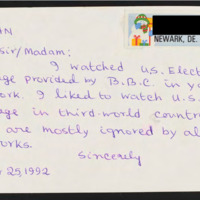 HN
NEWARK, DE.
Sir/Madam:
I watched U.S. Elect
ge provided by B.B.C. in yo
ork. I liked to watch U.S.
ge in third-world countr
are mostly ignored by al
orks.
Sincerely
25, 1992